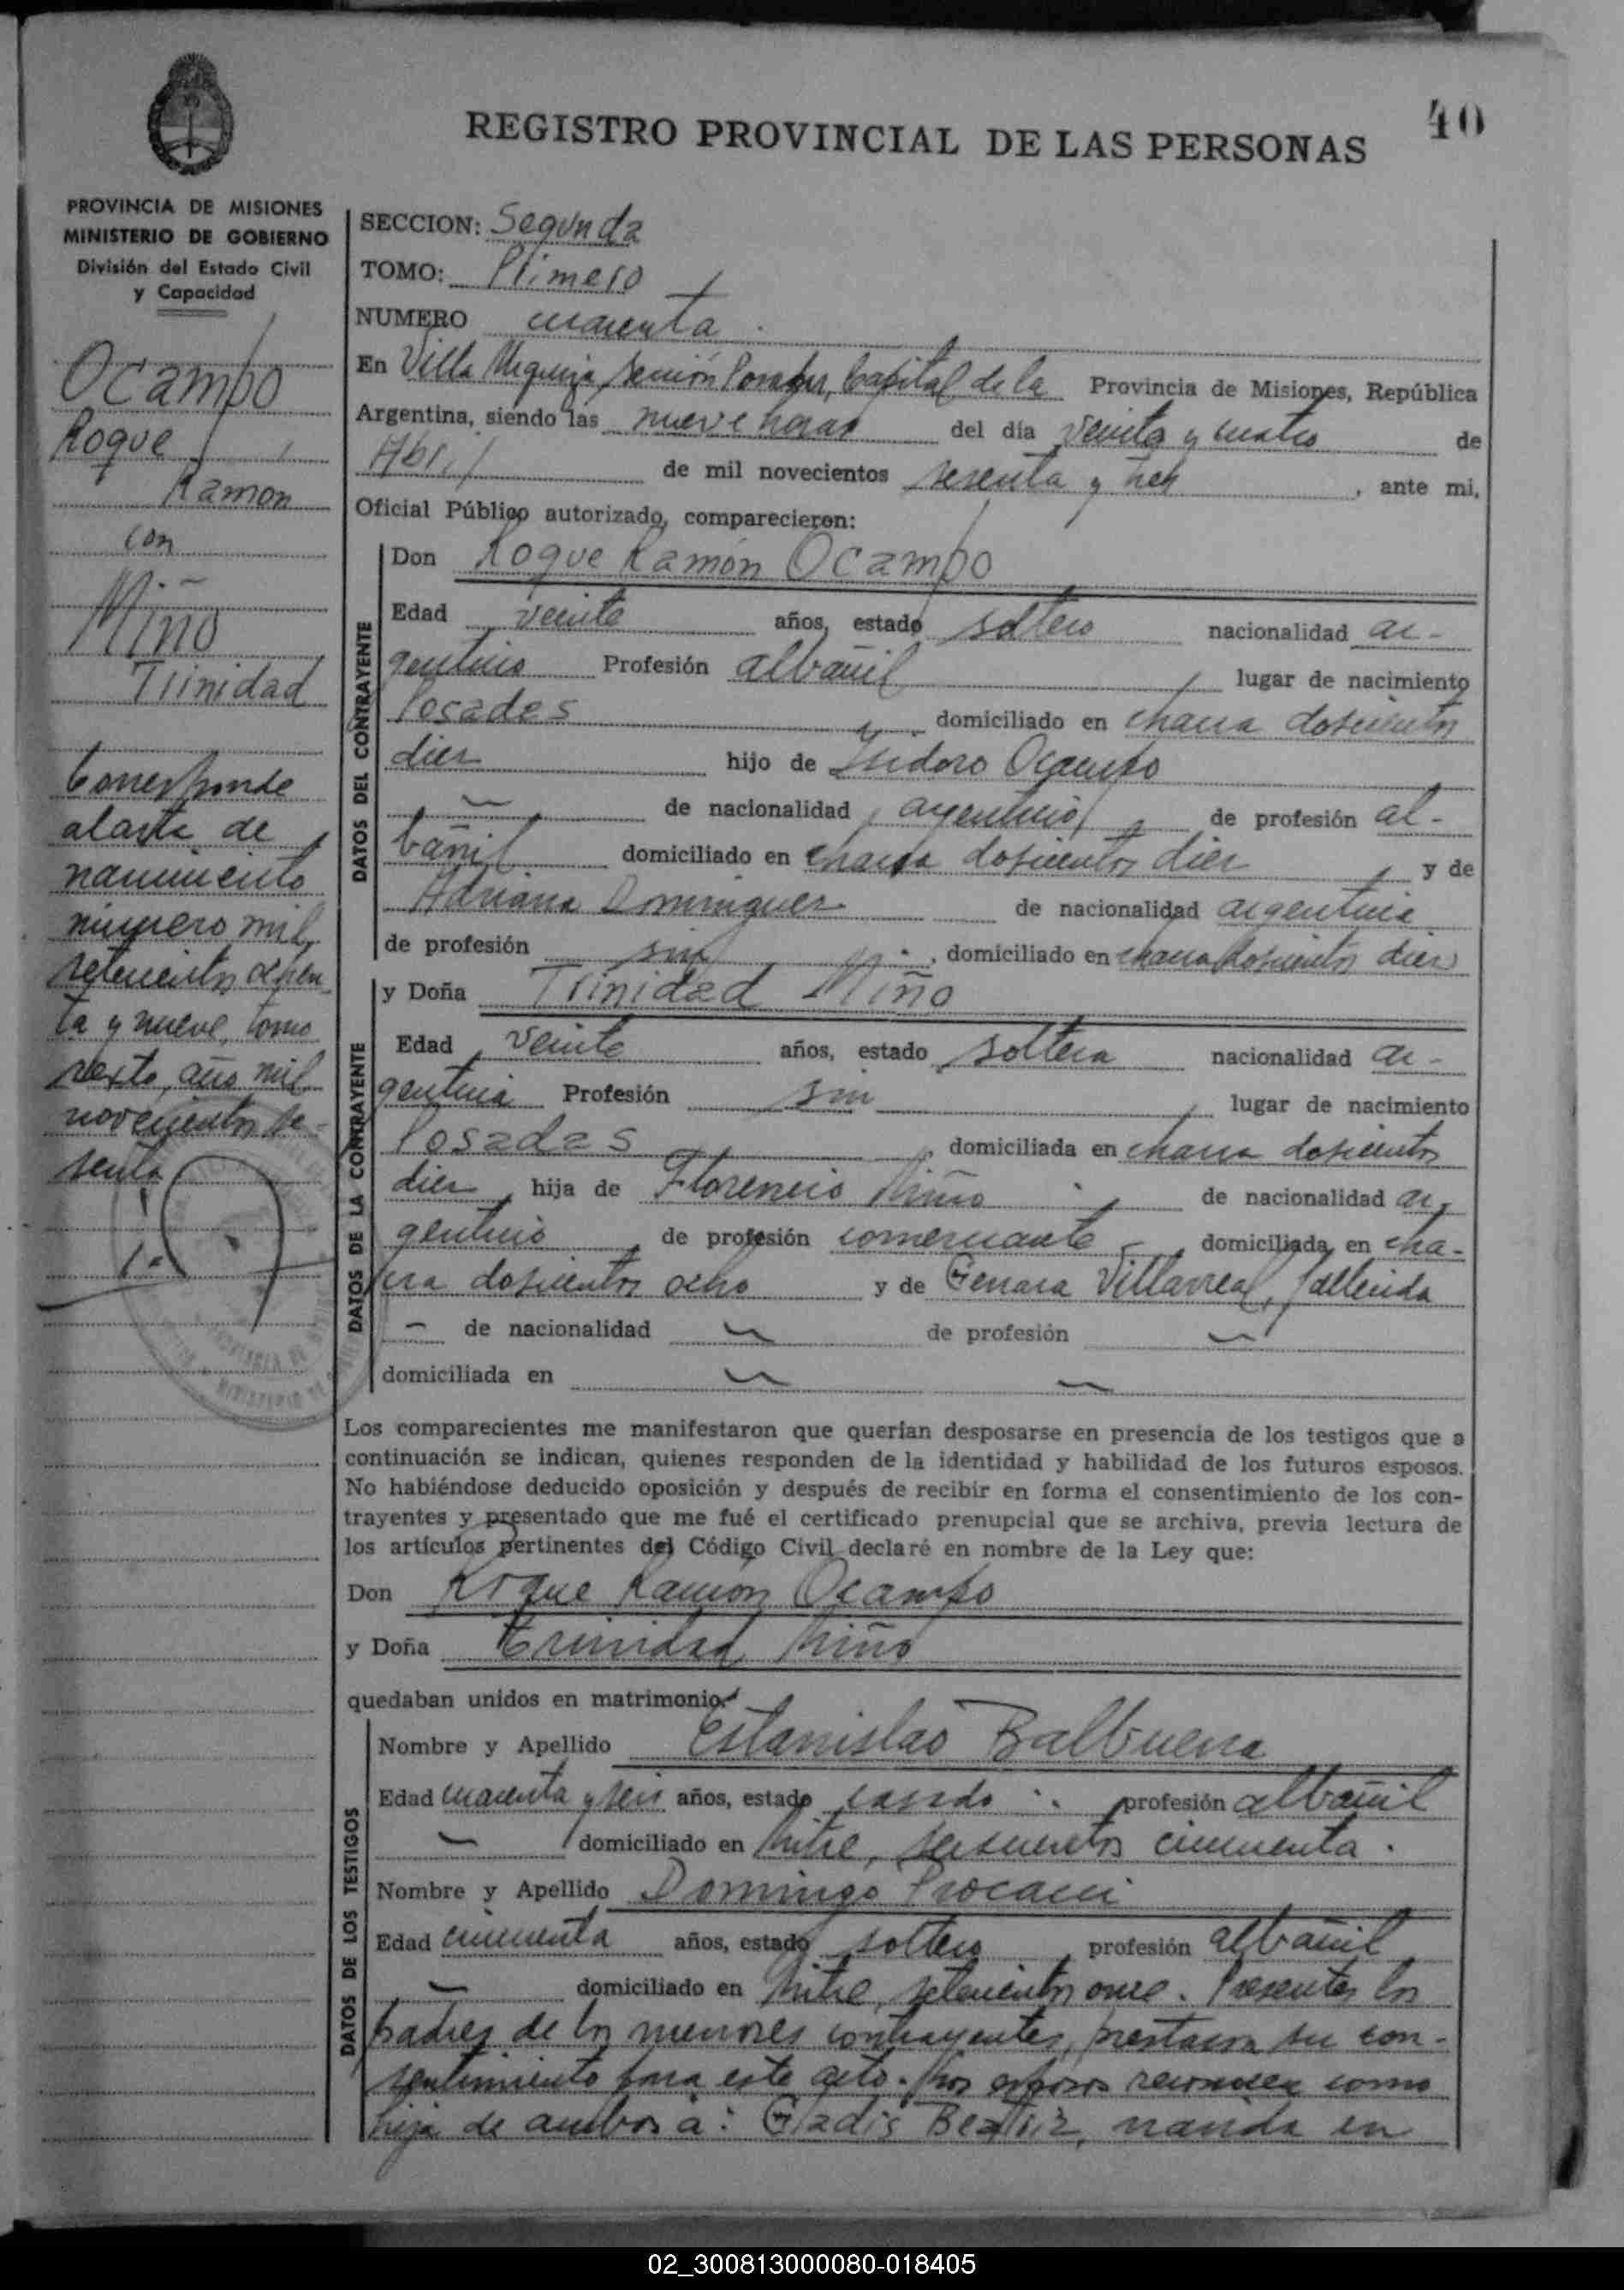 40
REGISTRO PROVINCIAL DE LAS PERSONAS
PROVINCIA DE MISIONES
MINISTERIO DE GOBIERNO
División del Estado Civil
y Capacidad
Ocampo
Roque
Ramon
con
Miño
Trinidad
Corresponde
al acta de
nacimiento
número mil
setecientos ochen
ta y nueve, tomo
sexto, año mil
novecientos se-
senta
SECCION: Segunda
TOMO: Primero
NUMERO cuarenta
En Villa Urquiza, sección Posadas, Capital de la Provincia de Misiones, República
Argentina, siendo las nueve horas del día veinte y cuatro de
Abril de mil novecientos sesenta y tres, ante mi,
Oficial Público autorizado, comparecieron:
DATOS DEL CONTRAYENTE
Don Roque Ramón Ocampo
Edad veinte años, estado soltero nacionalidad ar-
gentino Profesión albañil, lugar de nacimiento
Posadas, domiciliado en chacra doscientos
diez hijo de Isidoro Ocampo
de nacionalidad argentino, de profesión al-
bañil domiciliado en chacra doscientos diez, y de
Adriana Dominguez de nacionalidad argentina
de profesión sin, domiciliado en chacra doscientos diez
DATOS DE LA CONTRAYENTE
y Doña Trinidad Miño
Edad veinte años, estado soltera nacionalidad ar-
gentina Profesión sin, lugar de nacimiento
Posadas, domiciliada en chacra doscientos
diez, hija de Florencio Miño, de nacionalidad ar-
gentino, de profesión comerciante, domiciliada en cha-
cra doscientos ocho y de Genara Villarreal, fallecida
- de nacionalidad de profesión
domiciliada en
Los comparecientes me manifestaron que querían desposarse en presencia de los testigos que a
continuación se indican, quienes responden de la identidad y habilidad de los futuros esposos.
No habiéndose deducido oposición y después de recibir en forma el consentimiento de los con-
trayentes y presentado que me fué el certificado prenupcial que se archiva, previa lectura de
los artículos pertinentes del Código Civil declaré en nombre de la Ley que:
Don Roque Ramón Ocampo
y Doña Trinidad Miño
quedaban unidos en matrimonio.
DATOS DE LOS TESTIGOS
Nombre y Apellido Estanislao Balbuena
Edad cuarenta y seis años, estado casado, profesión albañil
domiciliado en Mitre, seiscientos cincuenta.
Nombre y Apellido Domingo Procacci
Edad cincuenta años, estado soltero, profesión albañil
domiciliado en Mitre, setecientos once. Presentes los
padres de los menores contrayentes, prestaron su con-
sentimiento para este acto. Los esposos reconocen como
hija de ambos a: Gladis Beatriz, nacida en
02_300813000080-018405